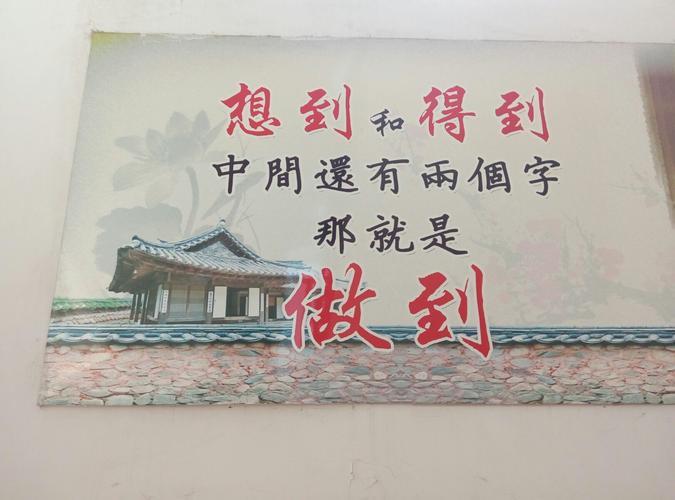 想到和得到
中間還有兩個字
那就是
做到